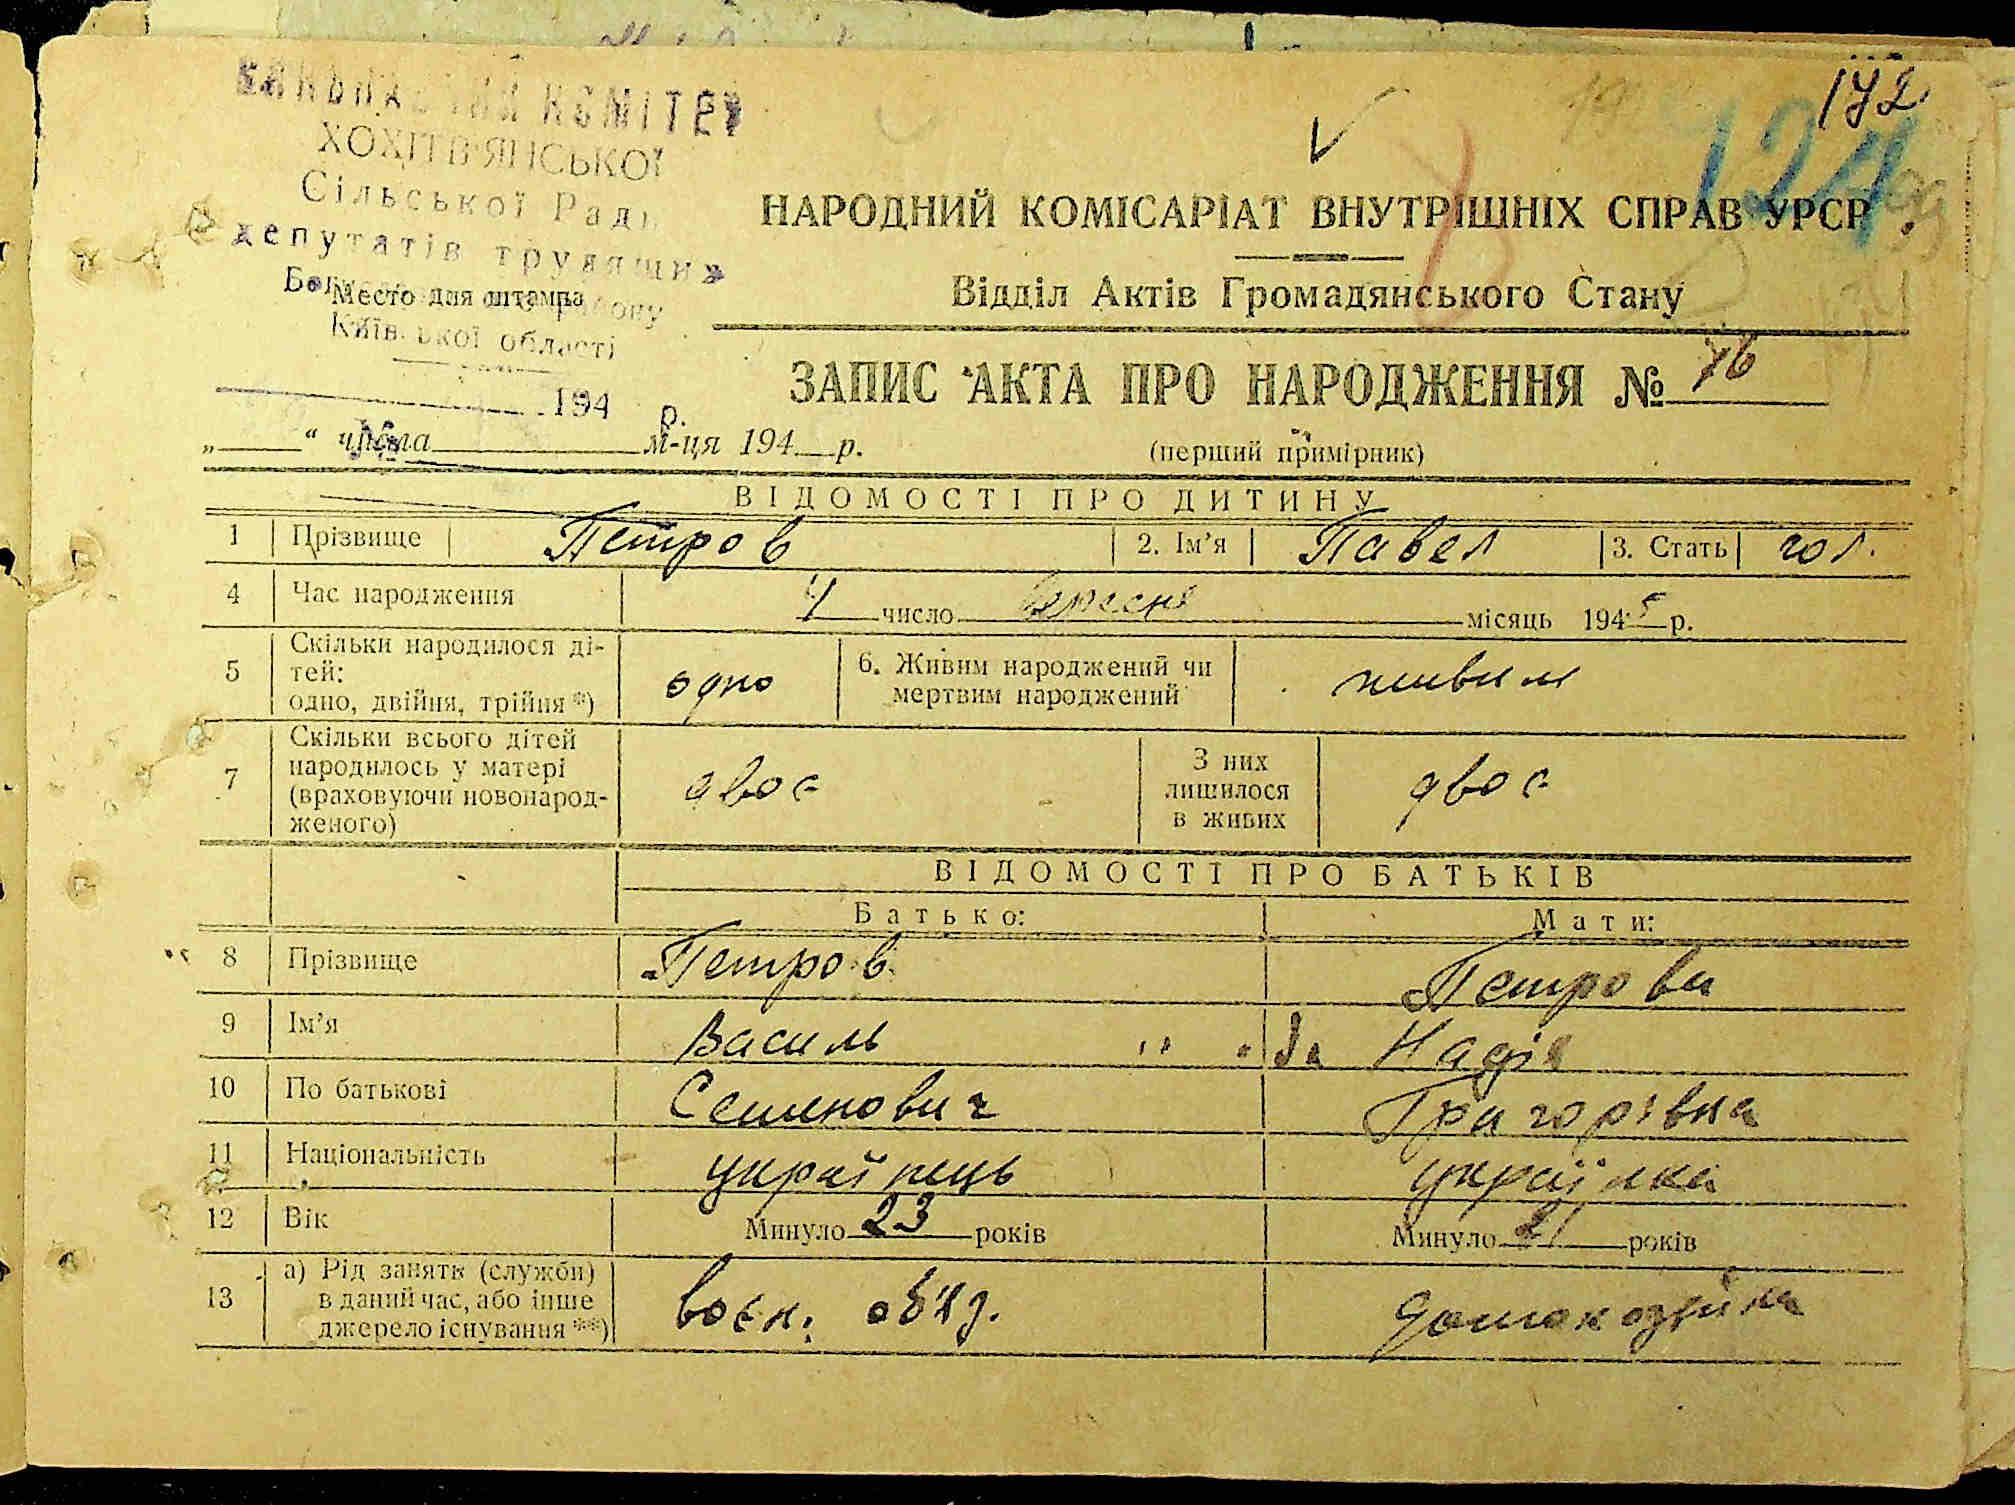 172
124
КОМІТЕТ
ХОХІТВ'ЯНСЬКОЇ
Сільської Ради
депутатів трудящих
Место для штампа
Київської області
194 р.
„ “ числа м-ця 194 р.
НАРОДНИЙ КОМІСАРІАТ ВНУТРІШНІХ СПРАВ УРСР
Відділ Актів Громадянського Стану
ЗАПИС АКТА ПРО НАРОДЖЕННЯ № 76
(перший примірник)
ВІДОМОСТІ ПРО ДИТИНУ
1 Прізвище Петров 2. Ім’я Павел 3. Стать чол.
4 Час народження 4 число вересня місяць 1945 р.
5 Скільки народилося ді-
тей:
одно, двійня, трійня *) одно 6. Живим народжений чи
мертвим народжений живим
7 Скільки всього дітей
народилось у матері
(враховуючи новонарод-
женого) двоє З них
лишилося
в живих двоє
ВІДОМОСТІ ПРО БАТЬКІВ
Батько: Мати:
8 Прізвище Петров Петрова
9 Ім’я Василь Надія
10 По батькові Семенович Григорівна
11 Національність українець українка
12 Вік Минуло 23 років Минуло 21 років
13 а) Рід занять (служби)
в даний час, або інше
джерело існування **) воєн. об'яз. домохозяйка